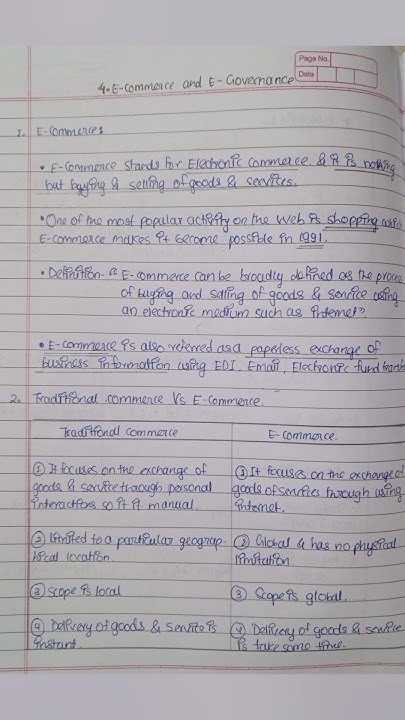 Page No.
Date
4. E-Commerce and E-Governance
1. E-Commerce:
• E-Commerce stands for Electronic commerce & it is nothing
but buying & selling of goods & services.
• One of the most popular activity on the web is shopping
E-commerce makes it become possible in 1991.
• Definition- "E-commerce can be broadly defined as the process
of buying and saling of goods & service using
an electronic medium such as internet".
• E-commerce is also referred as a paperless exchange of
business information using EDI, Email, Electronic fund
2. Traditional commerce Vs E-commerce.
Traditional commerce
E-commerce.
① It focuses on the exchange of
goods & service through personal
interactions so it is manual.
① It focuses on the exchange of
goods of services through using
internet.
② limited to a particular geograp-
hical location.
② Global & has no physical
limitation
③ scope is local
③ Scope is global.
④ Delivery of goods & service is
instant.
④ Delivery of goods & service
is take some time.